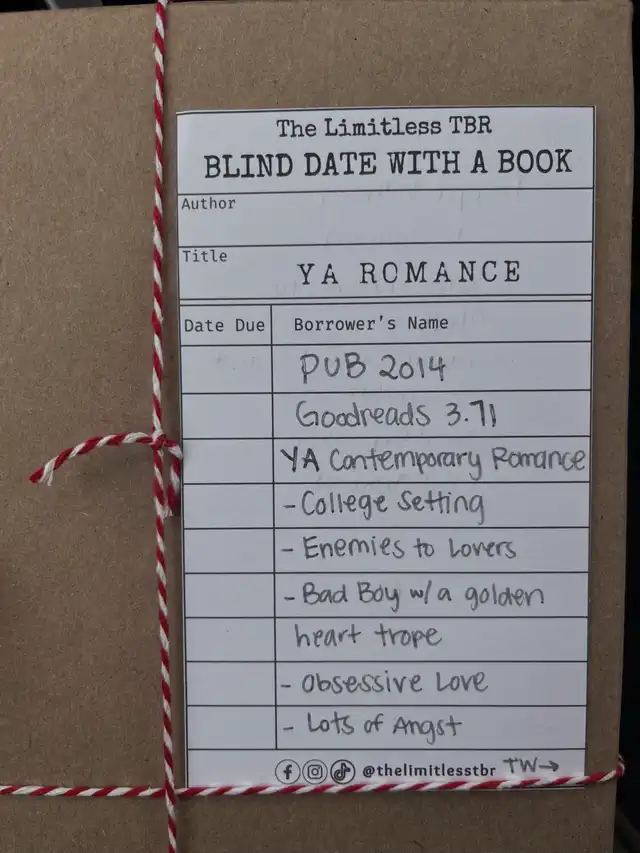 The Limitless TBR
BLIND DATE WITH A BOOK
Author
Title
YA ROMANCE
Date Due Borrower's Name
PUB 2014
Goodreads 3.71
YA Contemporary Romance
- College Setting
- Enemies to Lovers
- Bad Boy w/ a golden
heart trope
- Obsessive Love
- Lots of Angst
@thelimitlesstbr TW→